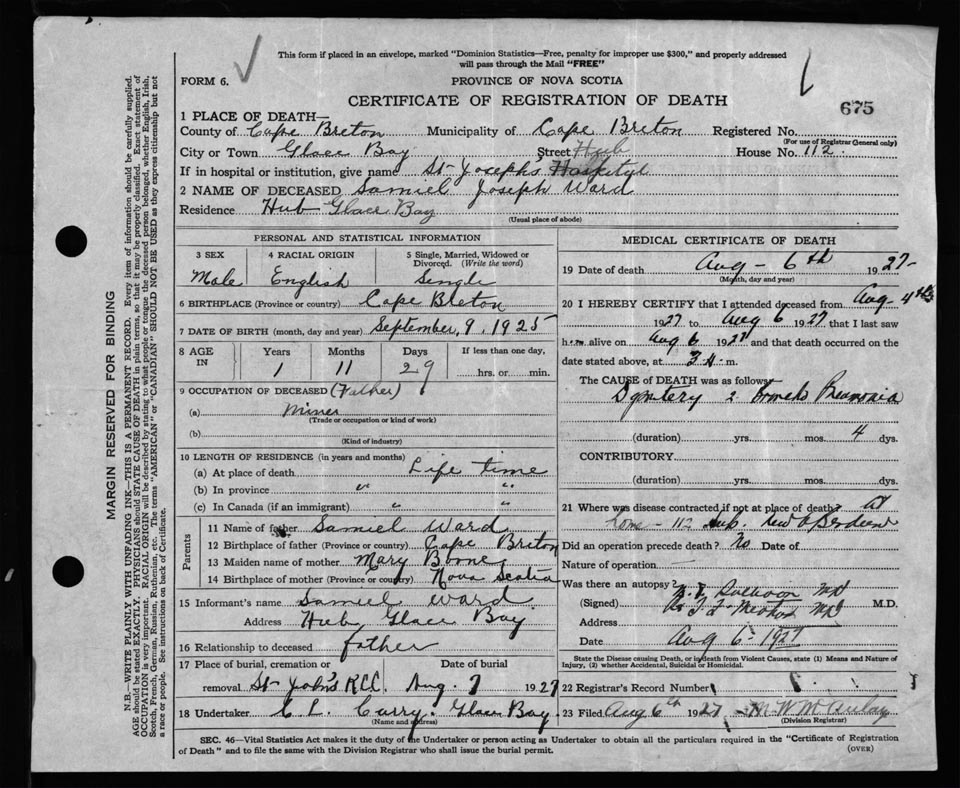 This form if placed in an envelope, marked "Dominion Statistics—Free, penalty for improper use $300," and properly addressed
will pass through the Mail "FREE"
FORM 6.
PROVINCE OF NOVA SCOTIA
CERTIFICATE OF REGISTRATION OF DEATH
675
1 PLACE OF DEATH—
County of Cape Breton Municipality of Cape Breton Registered No.
(For use of Registrar General only)
City or Town Glace Bay Street Hub House No. 112.
If in hospital or institution, give name St Joseph's Hospital
2 NAME OF DECEASED Samuel Joseph Ward
Residence Hub Glace Bay
(Usual place of abode)
PERSONAL AND STATISTICAL INFORMATION
3 SEX 4 RACIAL ORIGIN 5 Single, Married, Widowed or Divorced. (Write the word)
Male English Single
6 BIRTHPLACE (Province or country) Cape Breton
7 DATE OF BIRTH (month, day and year) September, 9, 1925
8 AGE IN Years Months Days If less than one day,
1 11 29 hrs. or min.
9 OCCUPATION OF DECEASED (Father)
(a) Miner
(Trade or occupation or kind of work)
(b)
(Kind of industry)
10 LENGTH OF RESIDENCE (in years and months)
(a) At place of death Life time
(b) In province " "
(c) In Canada (if an immigrant) " "
Parents
11 Name of father Samiel Ward
12 Birthplace of father (Province or country) Cape Briton
13 Maiden name of mother Mary Boone
14 Birthplace of mother (Province or country) Nova Scotia
15 Informant's name Samiel Ward
Address Hub, Glace Bay
16 Relationship to deceased father
17 Place of burial, cremation or Date of burial
removal St John's R.C.C. Aug. 7 1927
18 Undertaker C. L. Curry, Glace Bay.
(Name and address)
MEDICAL CERTIFICATE OF DEATH
19 Date of death Aug - 6th 1927-
(Month, day and year)
20 I HEREBY CERTIFY that I attended deceased from Aug 4th
1927 to Aug 6 1927 that I last saw
h im alive on Aug 6 1927 and that death occurred on the
date stated above, at m.
The CAUSE of DEATH was as follows:
Dysentery 2 Pneumonia
(duration) yrs. mos. 4 dys.
CONTRIBUTORY.
(duration) yrs. mos. dys.
21 Where was disease contracted if not at place of death? at
home - 112 Hub. New Aberdeen
Did an operation precede death? No Date of
Nature of operation —
Was there an autopsy?
(Signed) M.D.
Address
Date Aug 6 1927
State the Disease causing Death, or in death from Violent Causes, state (1) Means and Nature of
Injury, (2) whether Accidental, Suicidal or Homicidal.
22 Registrar's Record Number
23 Filed Aug 6th 1927
(Division Registrar)
SEC. 46—Vital Statistics Act makes it the duty of the Undertaker or person acting as Undertaker to obtain all the particulars required in the "Certificate of Registration
of Death" and to file the same with the Division Registrar who shall issue the burial permit.
(OVER)
MARGIN RESERVED FOR BINDING
N.B.—WRITE PLAINLY WITH UNFADING INK—THIS IS A PERMANENT RECORD. Every item of information should be carefully supplied.
AGE should be stated EXACTLY. PHYSICIANS should STATE CAUSE OF DEATH in plain terms, so that it may be properly classified. Exact statement of
OCCUPATION is very important. RACIAL ORIGIN will be described by stating to what people or tongue the deceased person belonged, whether English, Irish,
Scotch, French, German, Russian, Ruthenian, etc. The terms "AMERICAN" or "CANADIAN" SHOULD NOT BE USED as they express citizenship but not
a race or people. See instructions on back of Certificate.